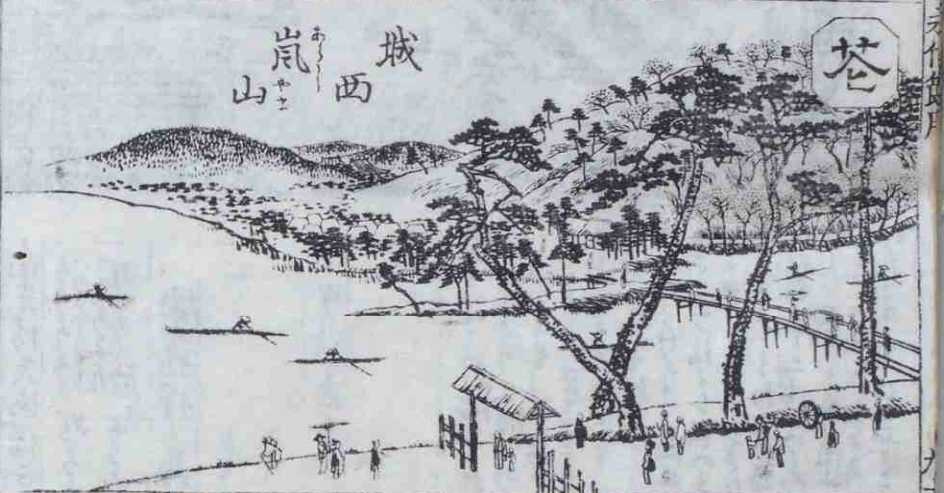 花
城西
嵐山
あらしやま